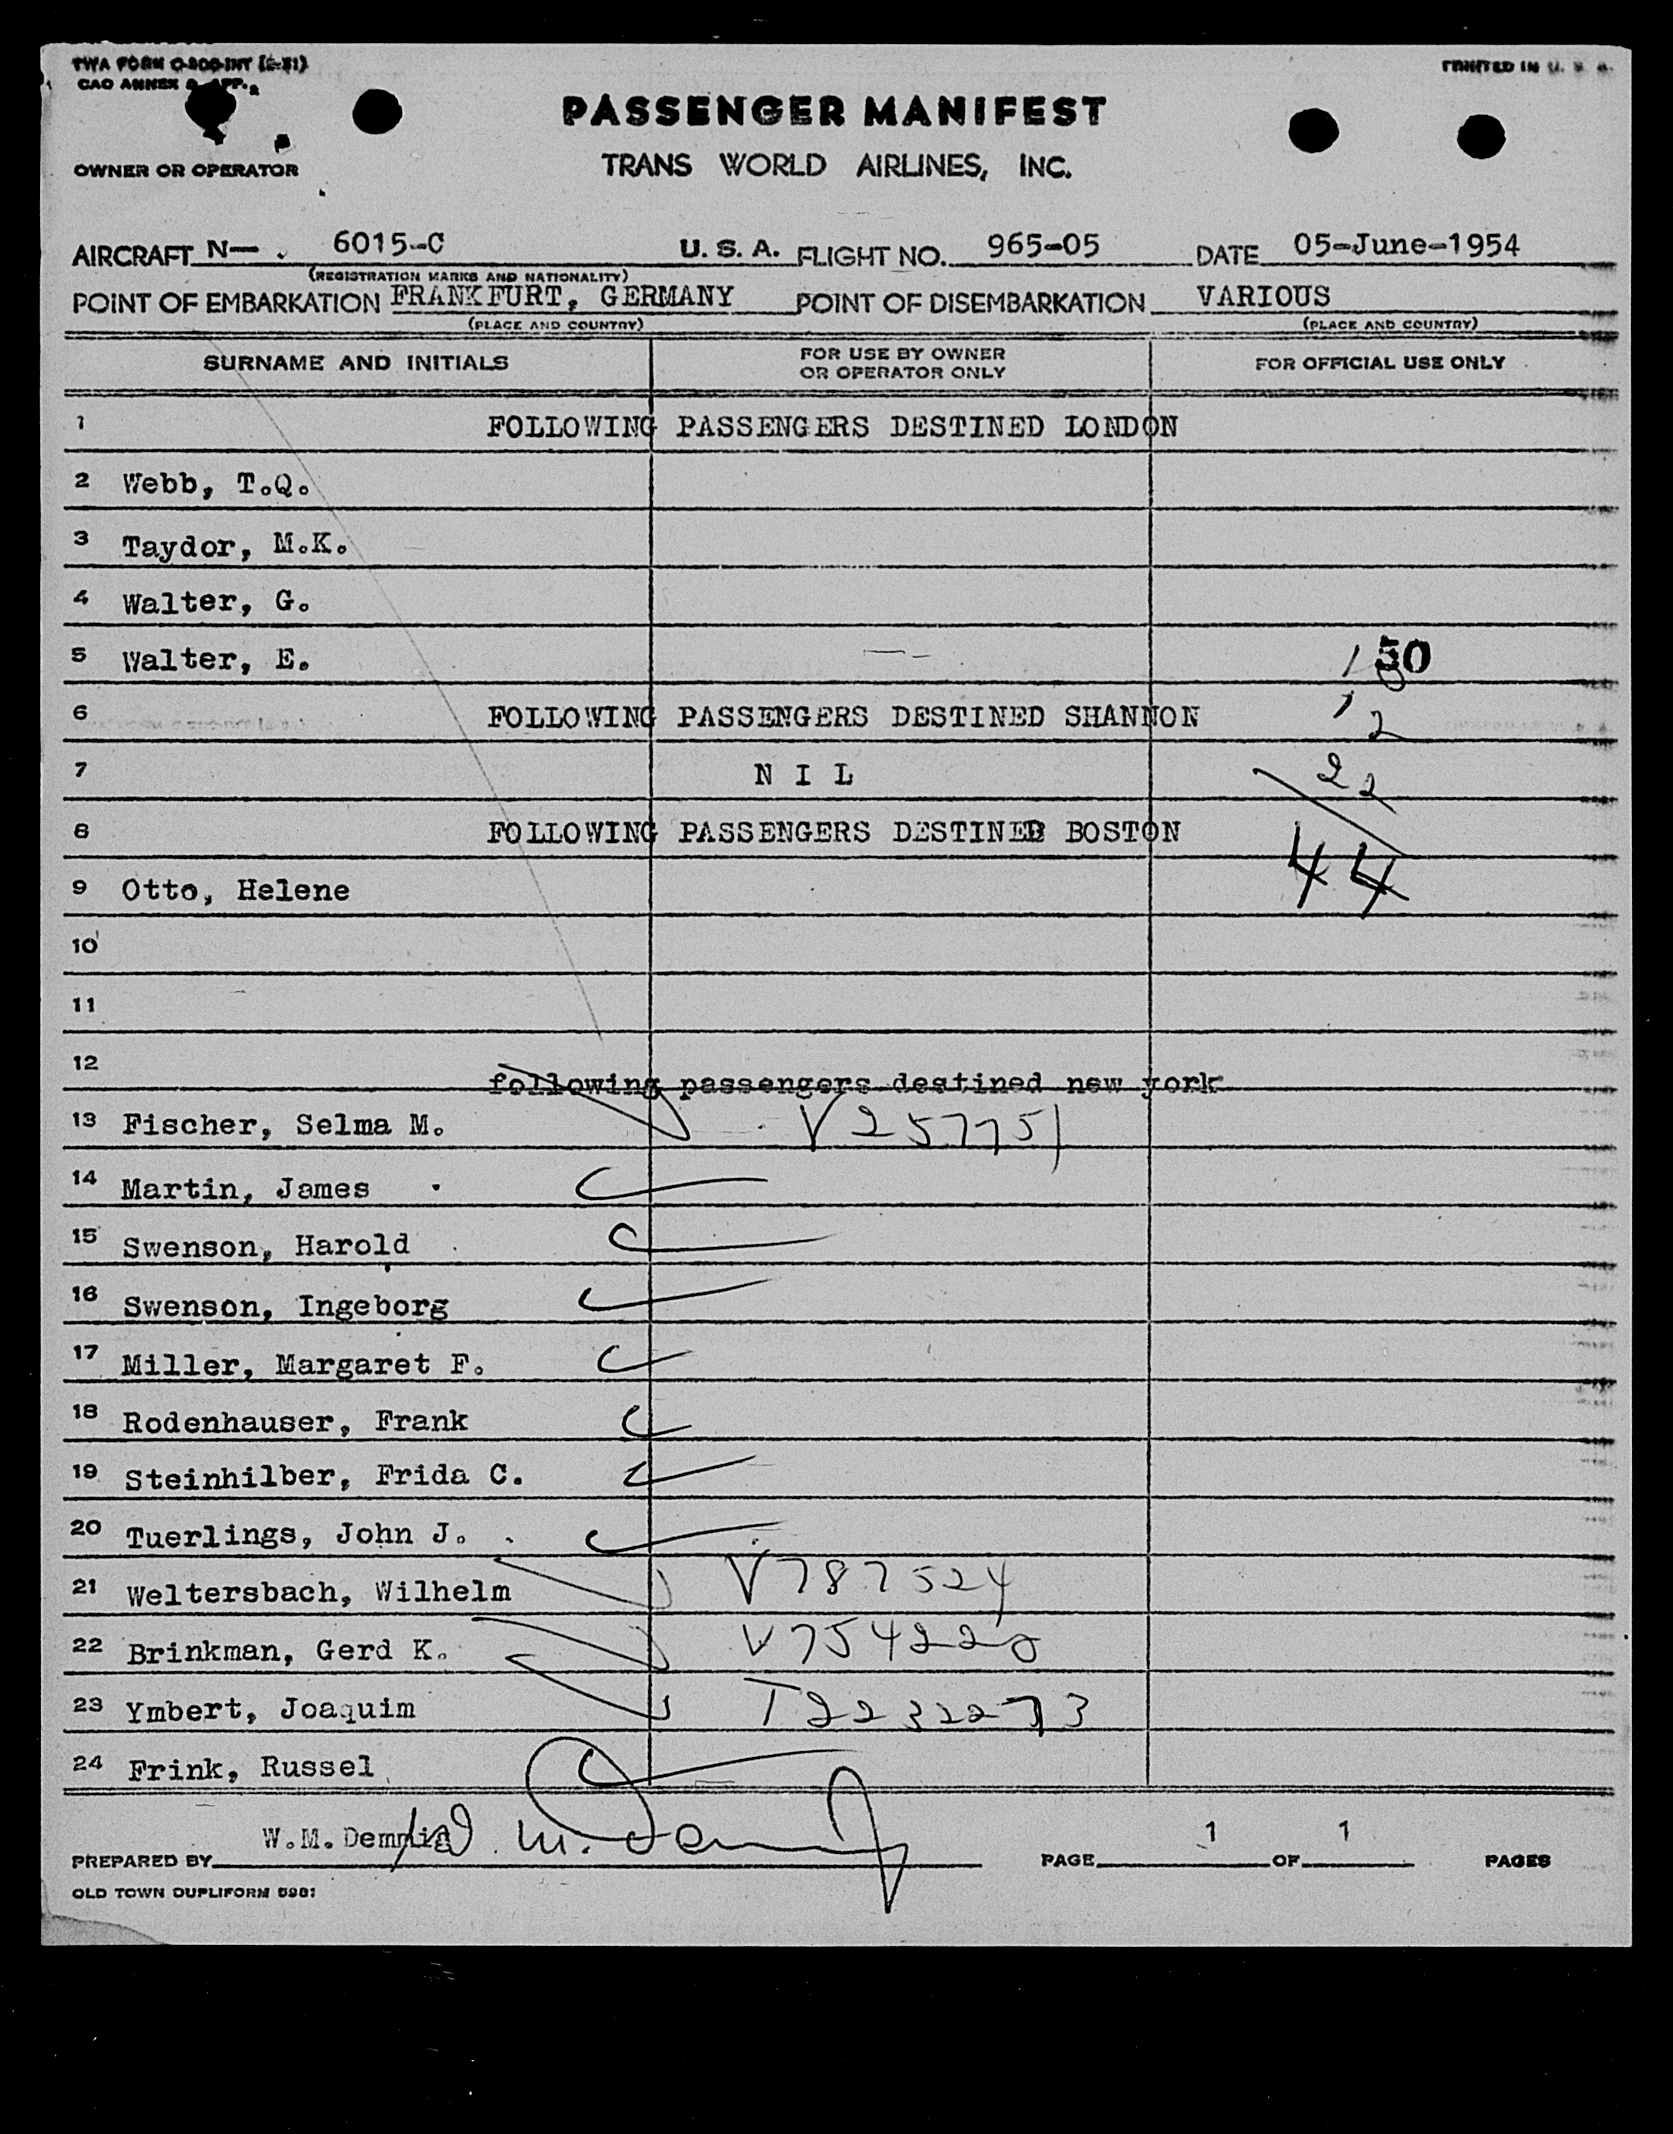 TWA FORM O-800-INT (6-51)
PRINTED IN U. S. A.
CAO ANNEX 9 APP.
PASSENGER MANIFEST
OWNER OR OPERATOR
TRANS WORLD AIRLINES, INC.
AIRCRAFT N— 6015-C U. S. A. FLIGHT NO. 965-05 DATE 05-June-1954
(REGISTRATION MARKS AND NATIONALITY)
POINT OF EMBARKATION FRANKFURT, GERMANY POINT OF DISEMBARKATION VARIOUS
(PLACE AND COUNTRY) (PLACE AND COUNTRY)
SURNAME AND INITIALS FOR USE BY OWNER OR OPERATOR ONLY FOR OFFICIAL USE ONLY
1 FOLLOWING PASSENGERS DESTINED LONDON
2 Webb, T.Q.
3 Taydor, M.K.
4 Walter, G.
5 Walter, E. 50
6 FOLLOWING PASSENGERS DESTINED SHANNON 12
7 N I L 22
8 FOLLOWING PASSENGERS DESTINED BOSTON
9 Otto, Helene 44
10
11
12
following passengers destined new york
13 Fischer, Selma M. V257751
14 Martin, James
15 Swenson, Harold
16 Swenson, Ingeborg
17 Miller, Margaret F.
18 Rodenhauser, Frank
19 Steinhilber, Frida C.
20 Tuerlings, John J.
21 Weltersbach, Wilhelm V787524
22 Brinkman, Gerd K. V754220
23 Ymbert, Joaquim T2232273
24 Frink, Russel
PREPARED BY W.M. PAGE 1 OF 1 PAGES
OLD TOWN DUPLIFORM 5981